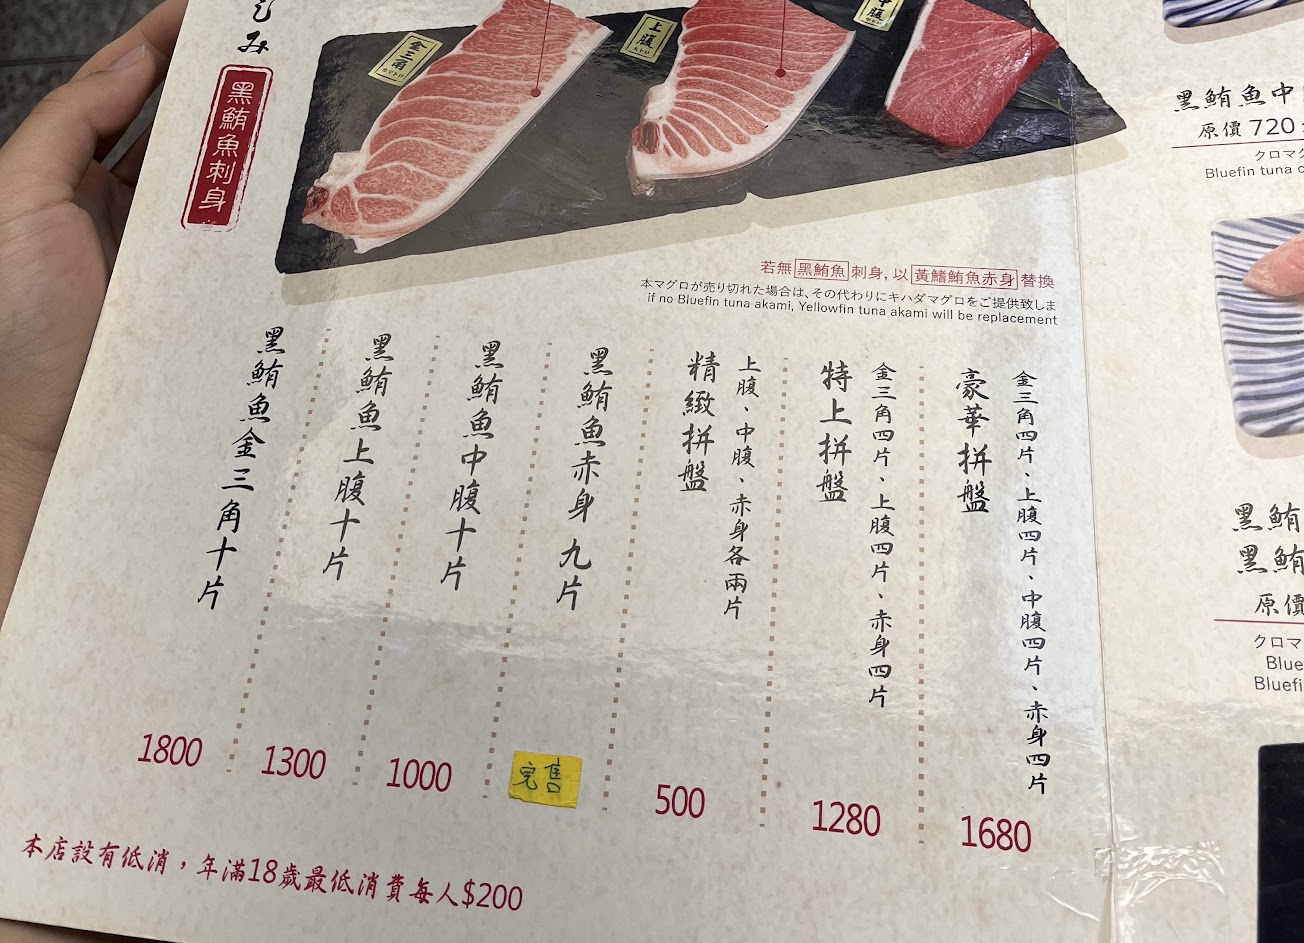 しみ
黑鮪魚刺身
金三角
カマトロ
上腹
大トロ
中腹
若無 黑鮪魚 刺身, 以 黃鰭鮪魚赤身 替換
本マグロが売り切れた場合は、その代わりにキハダマグロをご提供致しま
if no Bluefin tuna akami, Yellowfin tuna akami will be replacement
金三角四片、上腹四片、中腹四片、赤身四片
豪華拼盤
1680
金三角四片、上腹四片、赤身四片
特上拼盤
1280
上腹、中腹、赤身各兩片
精緻拼盤
500
黑鮪魚赤身 九片
完售
黑鮪魚中腹十片
1000
黑鮪魚上腹十片
1300
黑鮪魚金三角十片
1800
本店設有低消，年滿18歲最低消費每人$200
黑鮪魚中
原價 720
クロマグ
Bluefin tuna
黑鮪
黑鮪
原價
クロマ
Blue
Bluefi